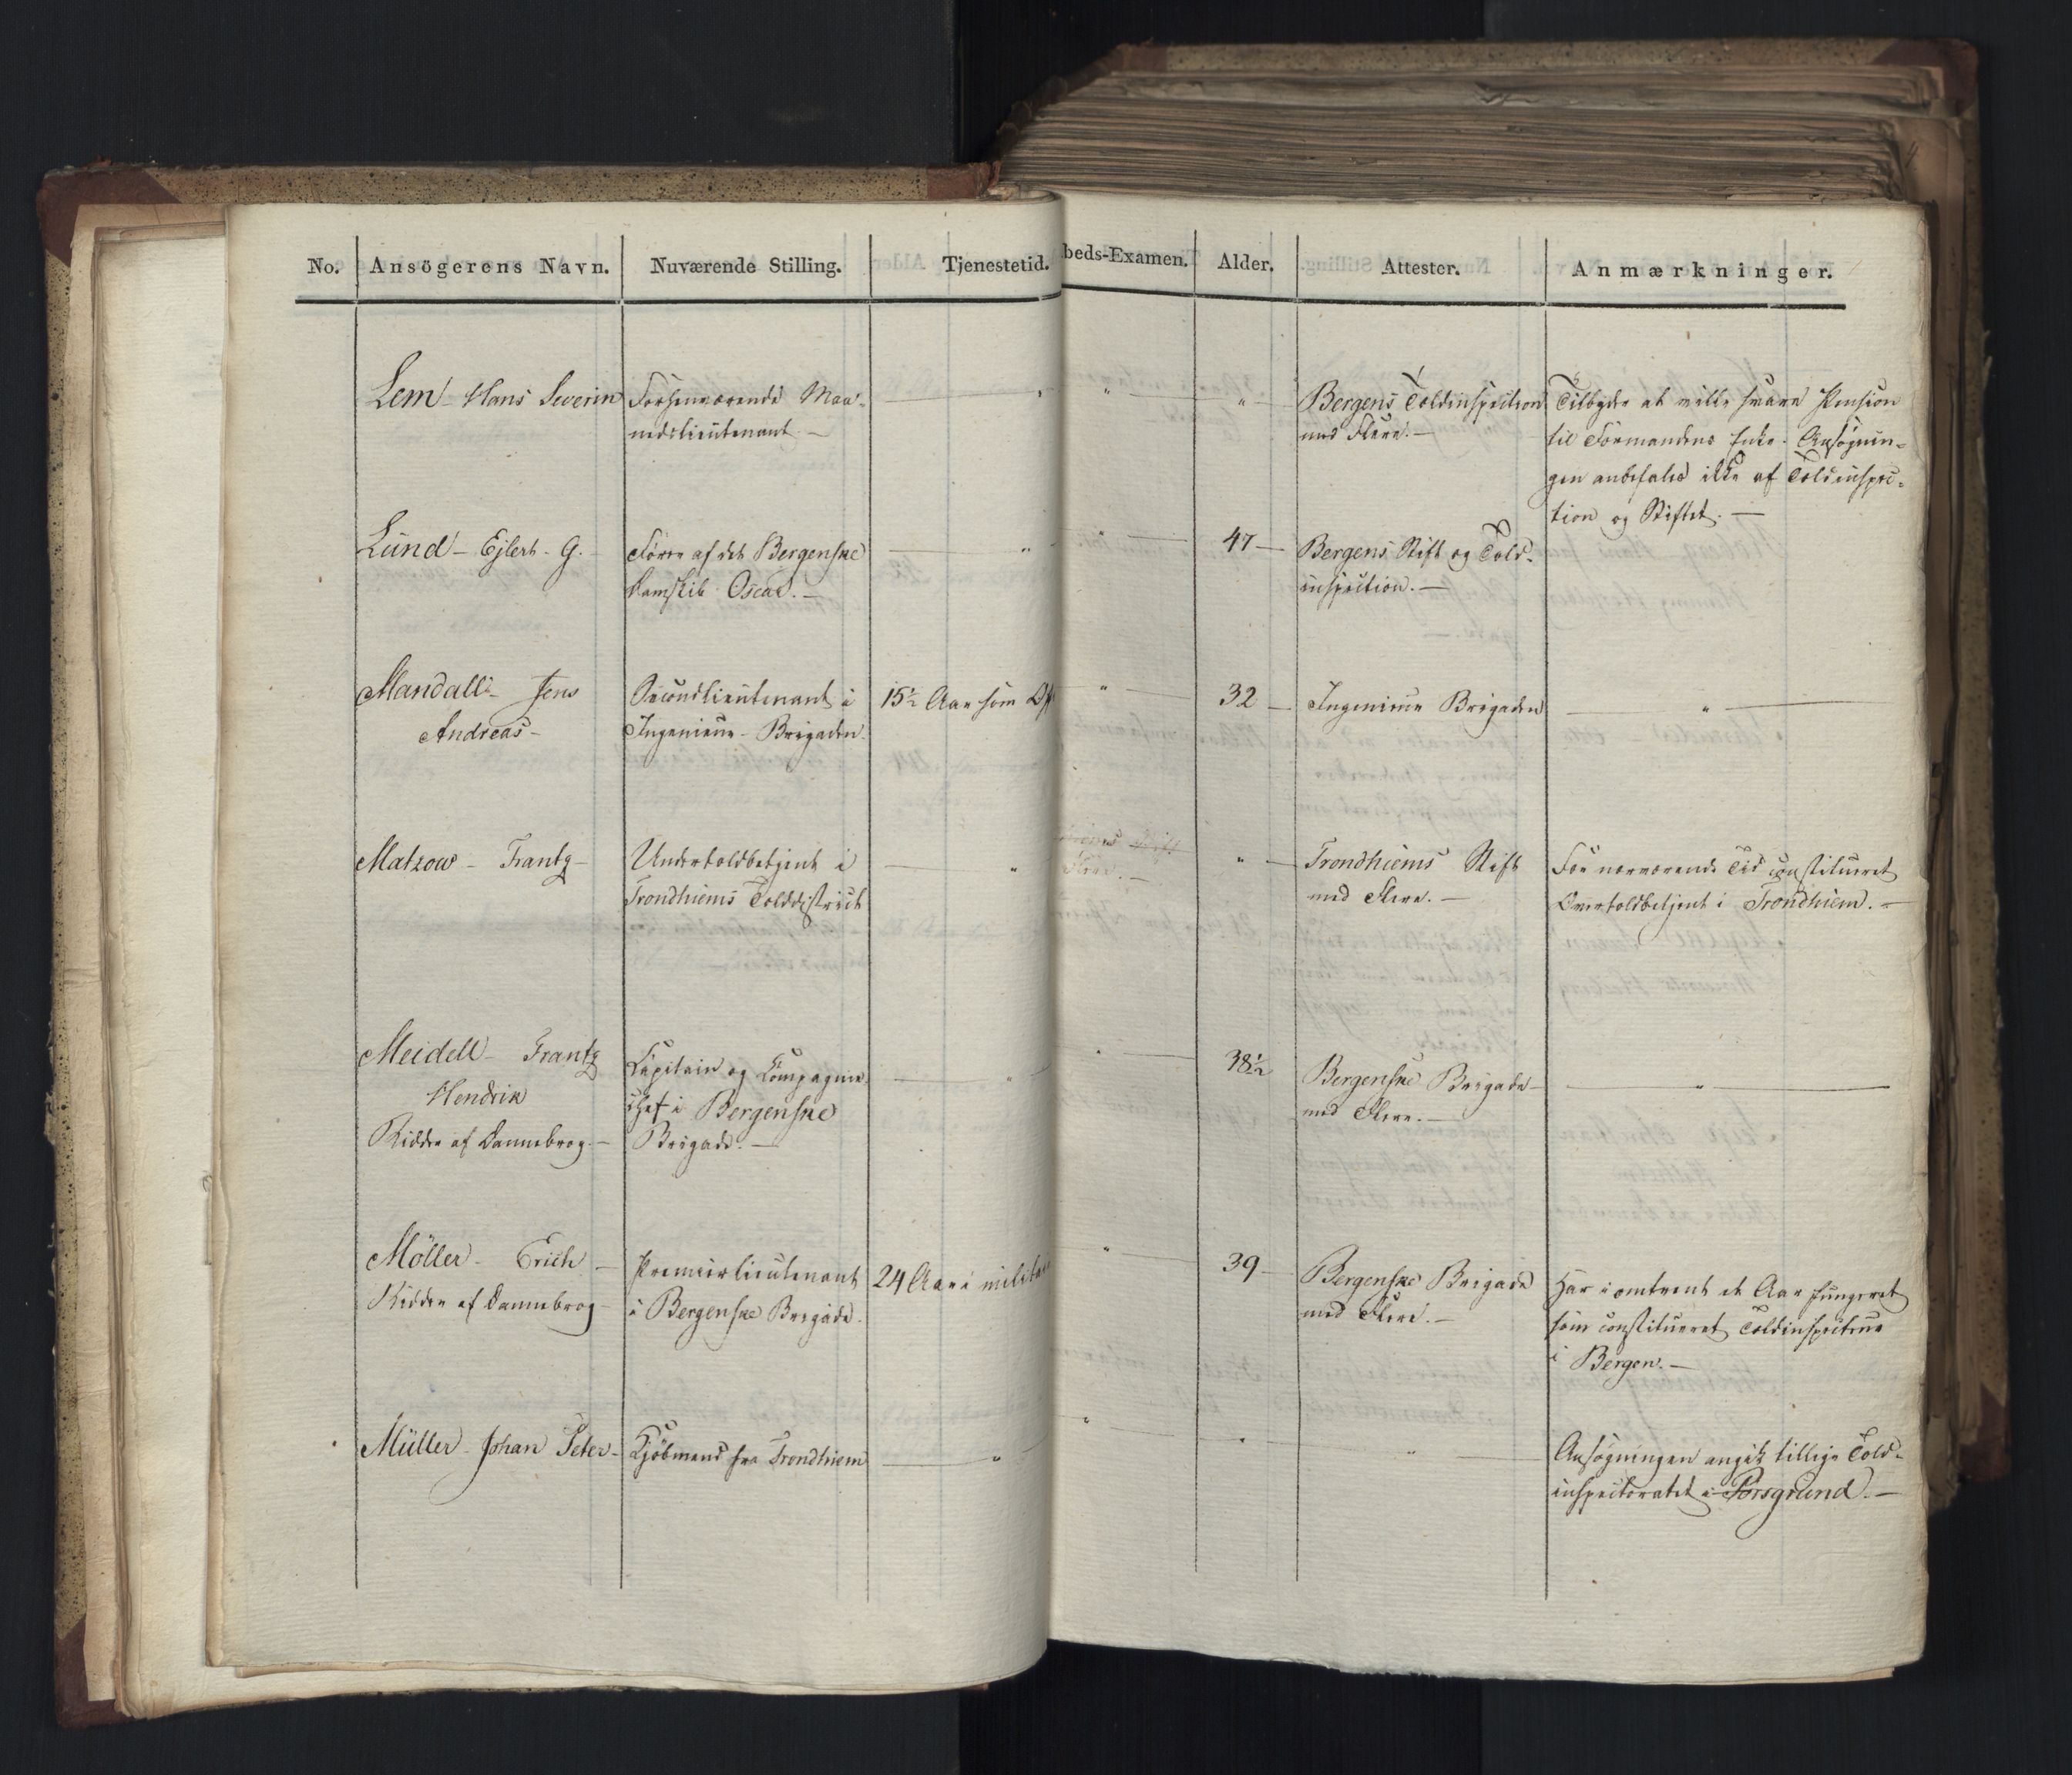 No. Ansögerens Navn. Nuværende Stilling. Tjenestetid. beds-Examen. Alder. Attester. Anmærkninger.
Lem - Hans Severin Forhenværende Maa- " " " Bergens Toldinspection Tilbyder at ville svare Pension
nedslieutenant. - med Flere. - til Formandens Enke. Ansøgnin-
gen anbefales ikke af Toldinspec-
tion og Stiftet. -
Lund - Ejlert - G. - Fører af det Bergenske " " 47 - Bergens Stift og Told-
Damskib Oscar. - inspection. -
Mandall - Jens Secondlieutenant i 15½ Aar som Off " 32 - Ingenieur Brigaden "
Andreas - Ingenieur - Brigaden.
Matzow - Frantz - Undertoldbetjent i " " Trondhiems Stift For nærværende Tid constitueret
Trondhiems Tolddistrict med Flere. - Overtoldbetjent i Trondhiem. -
Meidell - Frantz Capitain og Compagnie " " 38½ Bergenske Brigade - "
Hendrik chef i Bergenske med Flere. -
Ridder af Dannebrog. - Brigade. -
Möller - Erich - Premierlieutenant 24 Aar i militair " 39 - Bergenske Brigade Har i omtrent et Aar fungeret
Ridder af Dannebrog - i Bergenske Brigade. med Flere. - som constitueret Toldinspecteur
i Bergen. -
Müller - Johan Peter - Kjöbmand fra Trondhiem " " " " Ansøgningen angik tillige Told-
inspectoratet i Porsgrund. -